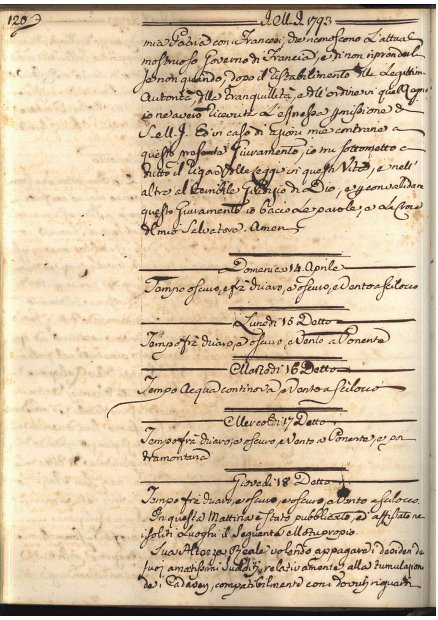 120
I.M.I. 1793
mia Patria con Francesi, che riconoscono L'attual
mostruoso Governo di Francia, e di non riprender le
se non quando, dopo il ristabilimento delle Legittim
Autorità, della Tranquillità, e dell'ordine in quel Regno
io ne avero ricevuta L'espressa permissione di
S. e M. I. Ed in caso di azioni mie contrarie a
questo Giuramento, io mi sottometto a
tutto il rigor delle Leggi in questa Vita, e nell'
altra al terribile Giudizio di Dio, e per convalidare
questo Giuramento, io bacio Le parole, e La Croce
del mio Salvatore. Amen
Domenica 14. Aprile
Tempo oscuro, e frà chiaro, e oscuro, e Vento a scilocco
Lunedi 15 Detto
Tempo frà chiaro, e oscuro, e Vento a Ponente
Martedi 16 Detto
Tempo Acqua continova, e Vento a scilocco
Mercoldi 17 Detto
Tempo frà chiaro, e oscuro, e Vento a Ponente, e poi
tramontana
Giovedi 18 Detto
Tempo frà chiaro, e oscuro, e oscuro, e Vento a scilocco.
In questa Mattina è stato pubblicato, ed affissato ne
soliti Luoghi il Seguente Mottuproprio.
Sua Altezza Reale volendo appagare i desideri de
suoi amatissimi sudditi relativamente alla tumulazione
de i Cadaveri, compatibilmente con i dovuti riguardi